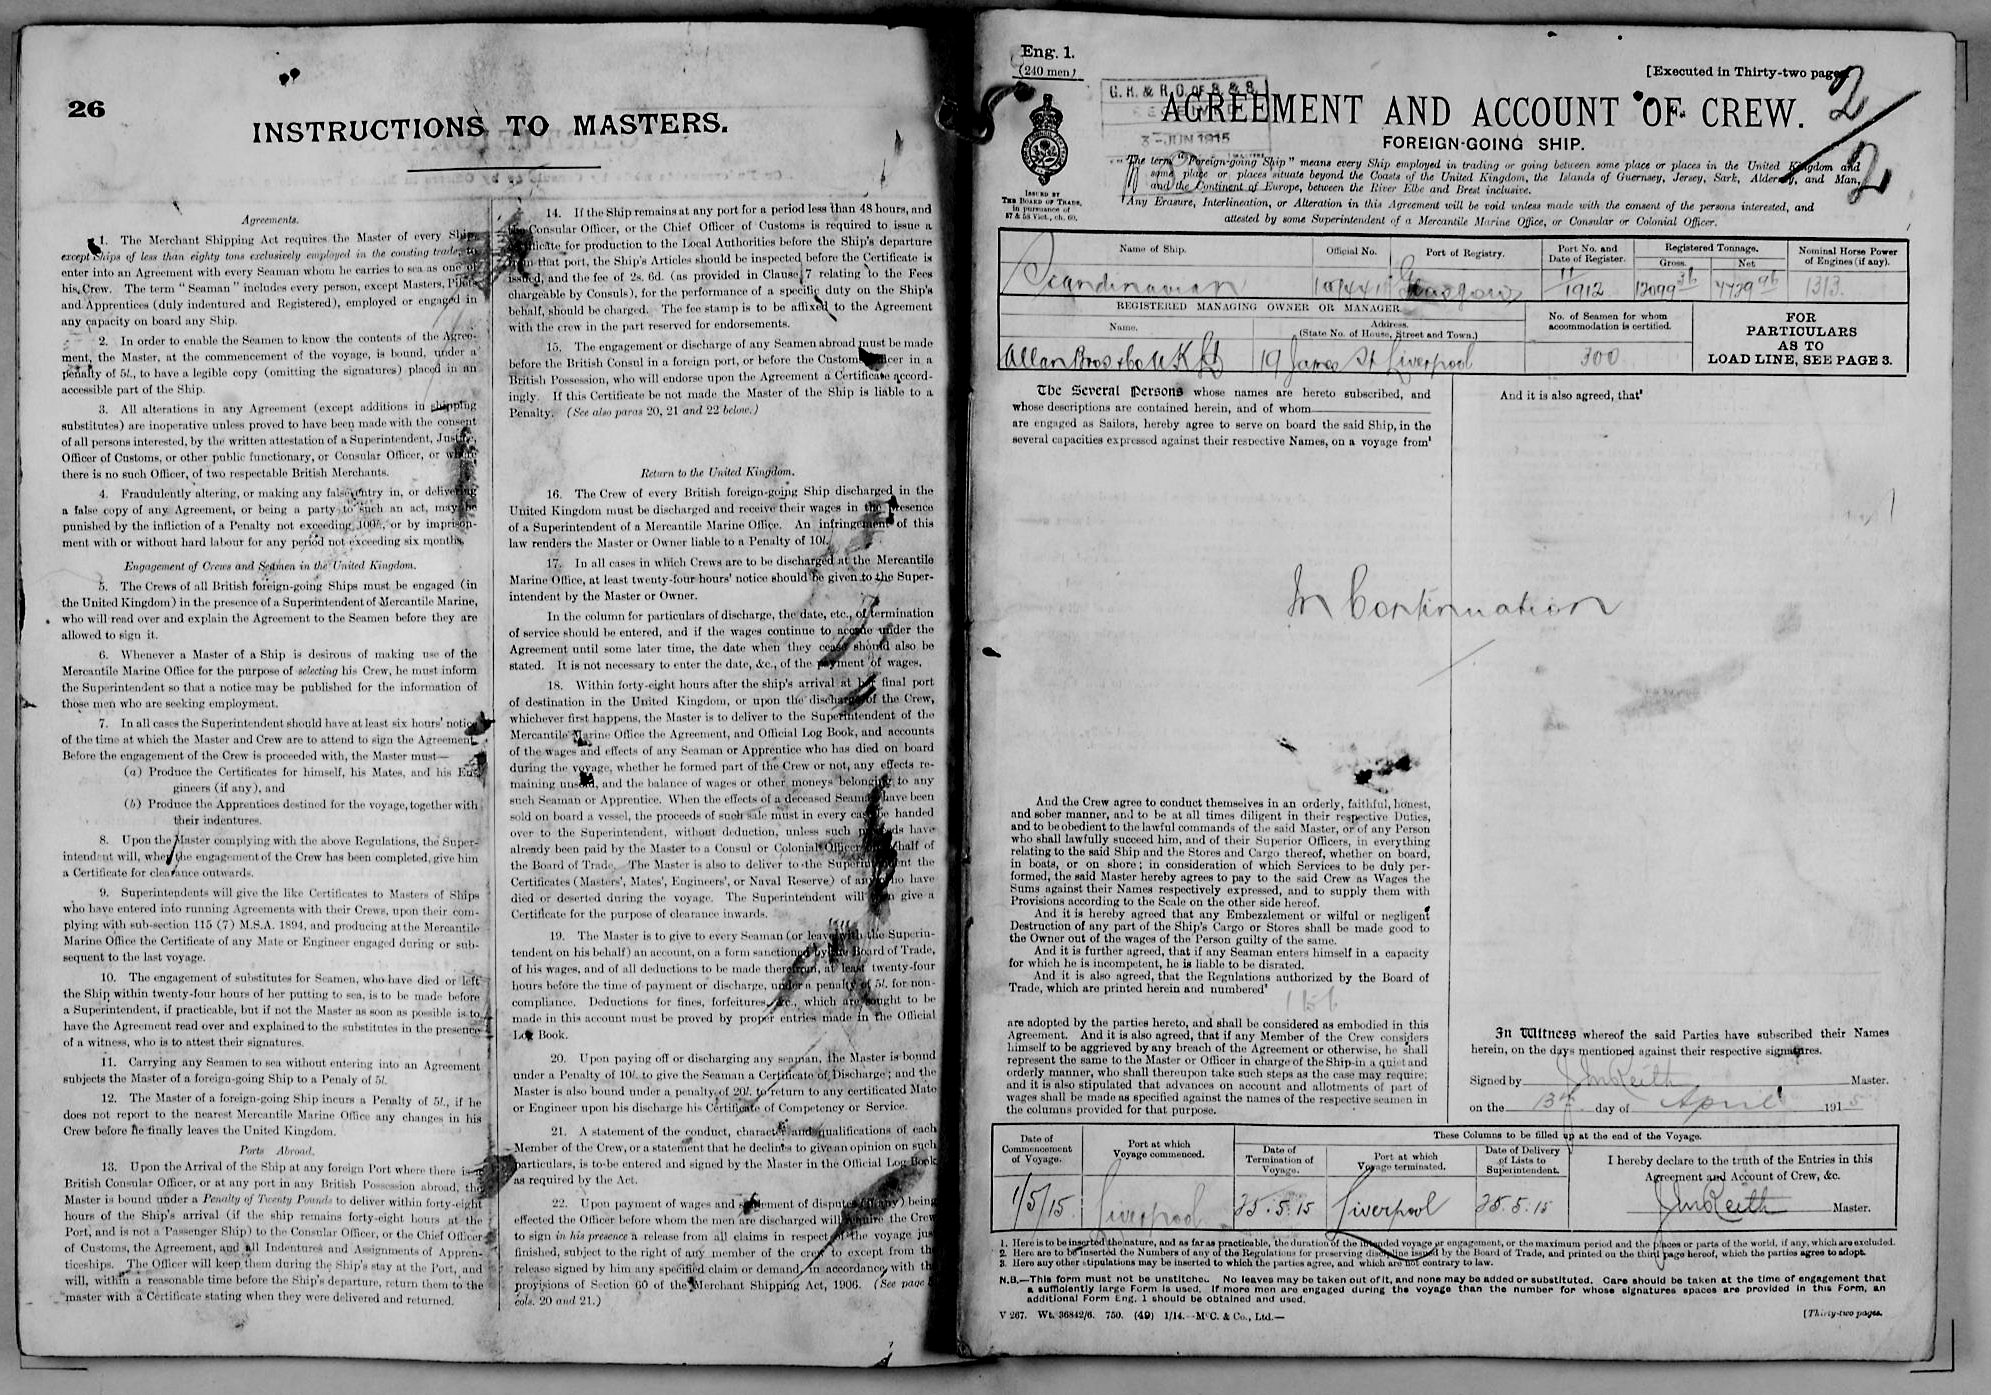 26
INSTRUCTIONS TO MASTERS.
Agreements.
1. The Merchant Shipping Act requires the Master of every Ship,
except Ships of less than eighty tons exclusively employed in the coasting trade, to
enter into an Agreement with every Seaman whom he carries to sea as one of
his Crew. The term "Seaman" includes every person, except Masters, Pilots,
and Apprentices (duly indentured and Registered), employed or engaged in
any capacity on board any Ship.
2. In order to enable the Seamen to know the contents of the Agree-
ment, the Master, at the commencement of the voyage, is bound, under a
penalty of 5l., to have a legible copy (omitting the signatures) placed in an
accessible part of the Ship.
3. All alterations in any Agreement (except additions in shipping
substitutes) are inoperative unless proved to have been made with the consent
of all persons interested, by the written attestation of a Superintendent, Justice,
Officer of Customs, or other public functionary, or Consular Officer, or where
there is no such Officer, of two respectable British Merchants.
4. Fraudulently altering, or making any false entry in, or delivering
a false copy of any Agreement, or being a party to such an act, may be
punished by the infliction of a Penalty not exceeding 100l., or by imprison-
ment with or without hard labour for any period not exceeding six months.
Engagement of Crews and Seamen in the United Kingdom.
5. The Crews of all British foreign-going Ships must be engaged (in
the United Kingdom) in the presence of a Superintendent of Mercantile Marine,
who will read over and explain the Agreement to the Seamen before they are
allowed to sign it.
6. Whenever a Master of a Ship is desirous of making use of the
Mercantile Marine Office for the purpose of selecting his Crew, he must inform
the Superintendent so that a notice may be published for the information of
those men who are seeking employment.
7. In all cases the Superintendent should have at least six hours' notice
of the time at which the Master and Crew are to attend to sign the Agreement.
Before the engagement of the Crew is proceeded with, the Master must—
(a) Produce the Certificates for himself, his Mates, and his En-
gineers (if any), and
(b) Produce the Apprentices destined for the voyage, together with
their indentures.
8. Upon the Master complying with the above Regulations, the Super-
intendent will, when the engagement of the Crew has been completed, give him
a Certificate for clearance outwards.
9. Superintendents will give the like Certificates to Masters of Ships
who have entered into running Agreements with their Crews, upon their com-
plying with sub-section 115 (7) M.S.A. 1894, and producing at the Mercantile
Marine Office the Certificate of any Mate or Engineer engaged during or sub-
sequent to the last voyage.
10. The engagement of substitutes for Seamen, who have died or left
the Ship within twenty-four hours of her putting to sea, is to be made before
a Superintendent, if practicable, but if not the Master as soon as possible is to
have the Agreement read over and explained to the substitutes in the presence
of a witness, who is to attest their signatures.
11. Carrying any Seamen to sea without entering into an Agreement
subjects the Master of a foreign-going Ship to a Penaly of 5l.
12. The Master of a foreign-going Ship incurs a Penalty of 5l., if he
does not report to the nearest Mercantile Marine Office any changes in his
Crew before he finally leaves the United Kingdom.
Ports Abroad.
13. Upon the Arrival of the Ship at any foreign Port where there is a
British Consular Officer, or at any port in any British Possession abroad, the
Master is bound under a Penalty of Twenty Pounds to deliver within forty-eight
hours of the Ship's arrival (if the ship remains forty-eight hours at the
Port, and is not a Passenger Ship) to the Consular Officer, or the Chief Officer
of Customs, the Agreement, and all Indentures and Assignments of Appren-
ticeships. The Officer will keep them during the Ship's stay at the Port, and
will, within a reasonable time before the Ship's departure, return them to the
master with a Certificate stating when they were delivered and returned.
14. If the Ship remains at any port for a period less than 48 hours, and
the Consular Officer, or the Chief Officer of Customs is required to issue a
Certificate for production to the Local Authorities before the Ship's departure
from that port, the Ship's Articles should be inspected before the Certificate is
issued, and the fee of 2s. 6d. (as provided in Clause 7 relating to the Fees
chargeable by Consuls), for the performance of a specific duty on the Ship's
behalf, should be charged. The fee stamp is to be affixed to the Agreement
with the crew in the part reserved for endorsements.
15. The engagement or discharge of any Seamen abroad must be made
before the British Consul in a foreign port, or before the Customs Officer in a
British Possession, who will endorse upon the Agreement a Certificate accord-
ingly. If this Certificate be not made the Master of the Ship is liable to a
Penalty. (See also paras 20, 21 and 22 below.)
Return to the United Kingdom.
16. The Crew of every British foreign-going Ship discharged in the
United Kingdom must be discharged and receive their wages in the presence
of a Superintendent of a Mercantile Marine Office. An infringement of this
law renders the Master or Owner liable to a Penalty of 10l.
17. In all cases in which Crews are to be discharged at the Mercantile
Marine Office, at least twenty-four hours' notice should be given to the Super-
intendent by the Master or Owner.
In the column for particulars of discharge, the date, etc., of termination
of service should be entered, and if the wages continue to accrue under the
Agreement until some later time, the date when they cease should also be
stated. It is not necessary to enter the date, &c., of the payment of wages.
18. Within forty-eight hours after the ship's arrival at her final port
of destination in the United Kingdom, or upon the discharge of the Crew,
whichever first happens, the Master is to deliver to the Superintendent of the
Mercantile Marine Office the Agreement, and Official Log Book, and accounts
of the wages and effects of any Seaman or Apprentice who has died on board
during the voyage, whether he formed part of the Crew or not, any effects re-
maining unsold, and the balance of wages or other moneys belonging to any
such Seaman or Apprentice. When the effects of a deceased Seaman have been
sold on board a vessel, the proceeds of such sale must in every case be handed
over to the Superintendent, without deduction, unless such proceeds have
already been paid by the Master to a Consul or Colonial Officer on behalf of
the Board of Trade. The Master is also to deliver to the Superintendent the
Certificates (Masters', Mates', Engineers', or Naval Reserve) of any who have
died or deserted during the voyage. The Superintendent will then give a
Certificate for the purpose of clearance inwards.
19. The Master is to give to every Seaman (or leave with the Superin-
tendent on his behalf) an account, on a form sanctioned by the Board of Trade,
of his wages, and of all deductions to be made therefrom, at least twenty-four
hours before the time of payment or discharge, under a penalty of 5l. for non-
compliance. Deductions for fines, forfeitures, &c., which are sought to be
made in this account must be proved by proper entries made in the Official
Log Book.
20. Upon paying off or discharging any seaman, the Master is bound
under a Penalty of 10l. to give the Seaman a Certificate of Discharge; and the
Master is also bound under a penalty of 20l. to return to any certificated Mate
or Engineer upon his discharge his Certificate of Competency or Service.
21. A statement of the conduct, character and qualifications of each
Member of the Crew, or a statement that he declines to give an opinion on such
particulars, is to be entered and signed by the Master in the Official Log Book
as required by the Act.
22. Upon payment of wages and settlement of disputes (if any) being
effected the Officer before whom the men are discharged will require the Crew
to sign in his presence a release from all claims in respect of the voyage just
finished, subject to the right of any member of the crew to except from the
release signed by him any specified claim or demand, in accordance with the
provisions of Section 60 of the Merchant Shipping Act, 1906. (See page
cols. 20 and 21.)
Eng. 1.
(240 men)
[Executed in Thirty-two pages.
G. R. & R. O. OF S. & S.
3-JUN 1915
2/2
AGREEMENT AND ACCOUNT OF CREW.
FOREIGN-GOING SHIP.
"The term "Foreign-going Ship" means every Ship employed in trading or going between some place or places in the United Kingdom and
some place or places situate beyond the Coasts of the United Kingdom, the Islands of Guernsey, Jersey, Sark, Alderney, and Man,
and the Continent of Europe, between the River Elbe and Brest inclusive.
Any Erasure, Interlineation, or Alteration in this Agreement will be void unless made with the consent of the persons interested, and
attested by some Superintendent of a Mercantile Marine Office, or Consular or Colonial Officer.
ISSUED BY
THE BOARD OF TRADE,
in pursuance of
57 & 58 Vict., ch. 60.
Name of Ship. Official No. Port of Registry. Port No. and Date of Register. Registered Tonnage. Gross. Net Nominal Horse Power of Engines (if any).
Scandinavian Glasgow 11/1912 12099 36 7729 96 1313.
REGISTERED MANAGING OWNER OR MANAGER
Name. Address. (State No. of House, Street and Town.) No. of Seamen for whom accommodation is certified.
FOR
PARTICULARS
AS TO
LOAD LINE, SEE PAGE 3.
Allan Bros & Co U K Ld 19 James St Liverpool 300
The Several Persons whose names are hereto subscribed, and
whose descriptions are contained herein, and of whom
are engaged as Sailors, hereby agree to serve on board the said Ship, in the
several capacities expressed against their respective Names, on a voyage from¹
And it is also agreed, that³
In Continuation
And the Crew agree to conduct themselves in an orderly, faithful, honest,
and sober manner, and to be at all times diligent in their respective Duties,
and to be obedient to the lawful commands of the said Master, or of any Person
who shall lawfully succeed him, and of their Superior Officers, in everything
relating to the said Ship and the Stores and Cargo thereof, whether on board,
in boats, or on shore; in consideration of which Services to be duly per-
formed, the said Master hereby agrees to pay to the said Crew as Wages the
Sums against their Names respectively expressed, and to supply them with
Provisions according to the Scale on the other side hereof.
And it is hereby agreed that any Embezzlement or wilful or negligent
Destruction of any part of the Ship's Cargo or Stores shall be made good to
the Owner out of the wages of the Person guilty of the same.
And it is further agreed, that if any Seaman enters himself in a capacity
for which he is incompetent, he is liable to be disrated.
And it is also agreed, that the Regulations authorized by the Board of
Trade, which are printed herein and numbered²
are adopted by the parties hereto, and shall be considered as embodied in this
Agreement. And it is also agreed, that if any Member of the Crew considers
himself to be aggrieved by any breach of the Agreement or otherwise, he shall
represent the same to the Master or Officer in charge of the Ship in a quiet and
orderly manner, who shall thereupon take such steps as the case may require;
and it is also stipulated that advances on account and allotments of part of
wages shall be made as specified against the names of the respective seamen in
the columns provided for that purpose.
In Witness whereof the said Parties have subscribed their Names
herein, on the days mentioned against their respective signatures.
Signed by Jn Reith Master.
on the 13th day of April 1915
Date of Commencement of Voyage. Port at which Voyage commenced. These Columns to be filled up at the end of the Voyage.
Date of Termination of Voyage. Port at which Voyage terminated. Date of Delivery of Lists to Superintendent.
I hereby declare to the truth of the Entries in this
Agreement and Account of Crew, &c.
1/5/15 Liverpool 25.5.15 Liverpool 25.5.15 Jn Reith Master.
1. Here is to be inserted the nature, and as far as practicable, the duration of the intended voyage or engagement, or the maximum period and the places or parts of the world, if any, which are excluded.
2. Here are to be inserted the Numbers of any of the Regulations for preserving discipline issued by the Board of Trade, and printed on the third page hereof, which the parties agree to adopt.
3. Here any other stipulations may be inserted to which the parties agree, and which are not contrary to law.
N.B.—This form must not be unstitched. No leaves may be taken out of it, and none may be added or substituted. Care should be taken at the time of engagement that
a sufficiently large Form is used. If more men are engaged during the voyage than the number for whose signatures spaces are provided in this Form, an
additional Form Eng. 1 should be obtained and used.
V 267. Wt. 36842/6. 750. (49) 1/14.—McC. & Co., Ltd.—
[Thirty-two pages.